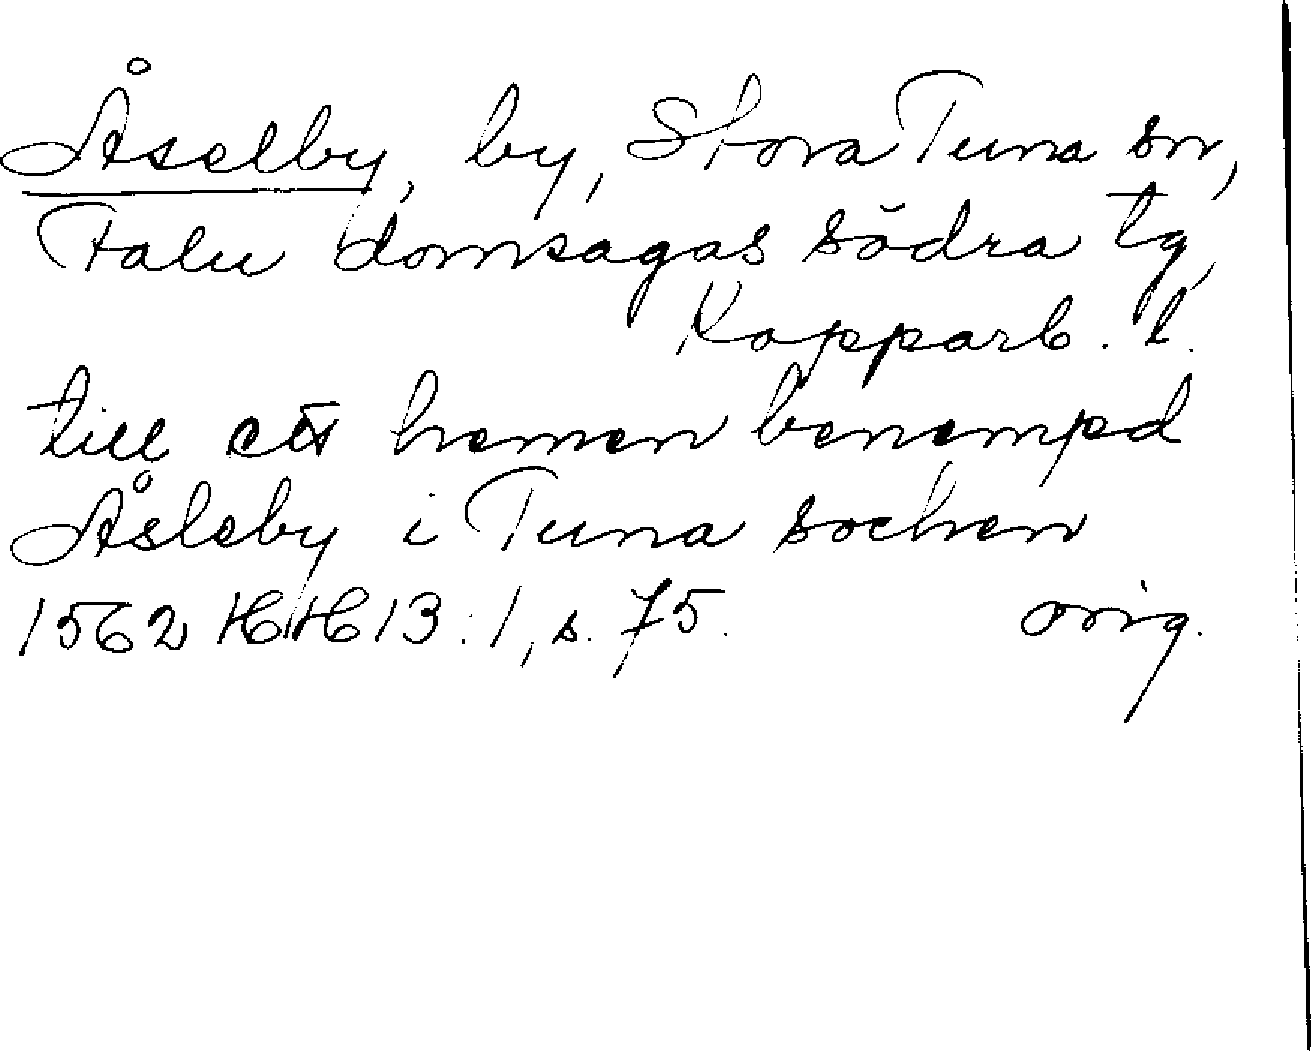 Åselby, by, Stora Tuna sn,
Falu domsagas södra tg,
Kopparb. l.
till ett hemen benempd
Åsleby i Tuna sochen
1562 HH 13:1, s. 75. orig.